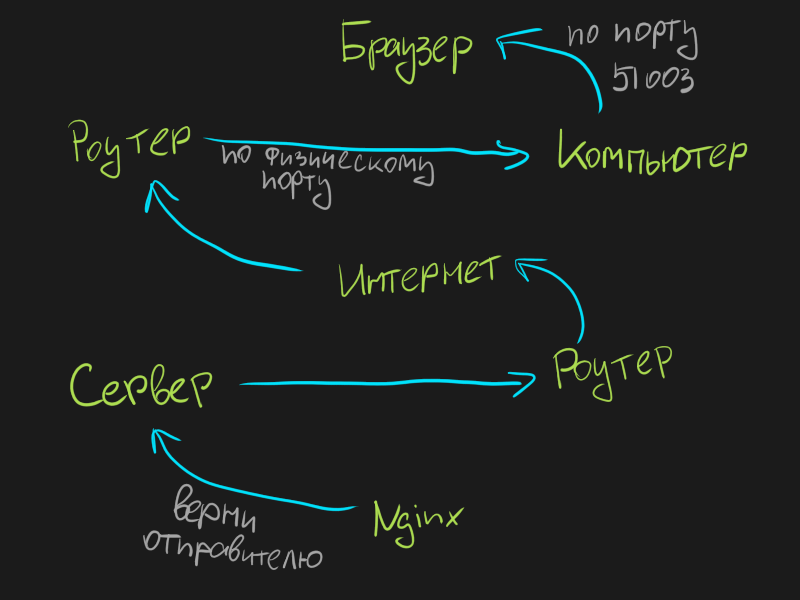 Браузер
по порту
51003
Роутер
по физическому
порту
Компьютер
Интернет
Роутер
Сервер
верни
отправителю
Nginx